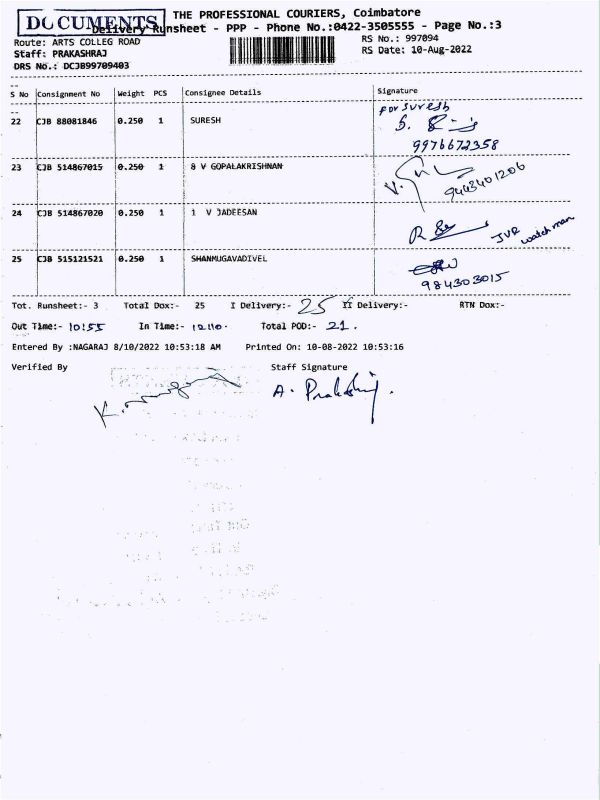 DOCUMENTS
THE PROFESSIONAL COURIERS, Coimbatore
Delivery Runsheet - PPP - Phone No.:0422-3505555 - Page No.:3
Route: ARTS COLLEG ROAD
RS No.: 997094
Staff: PRAKASHRAJ
RS Date: 10-Aug-2022
DRS No.: DCJB99709403
S No Consignment No Weight PCS Consignee Details Signature
22 CJB 88081846 0.250 1 SURESH
for Suresh
9976672358
23 CJB 514867015 0.250 1 8 V GOPALAKRISHNAN
9443401206
24 CJB 514867020 0.250 1 1 V JADEESAN
JVR watch man
25 CJB 515121521 0.250 1 SHANMUGAVADIVEL
984303015
Tot. Runsheet:- 3 Total Dox:- 25 I Delivery:- 25 II Delivery:- RTN Dox:-
Out Time:- 10:55 In Time:- 12:10. Total POD:- 21.
Entered By :NAGARAJ 8/10/2022 10:53:18 AM Printed On: 10-08-2022 10:53:16
Verified By Staff Signature
A. Prakashraj.